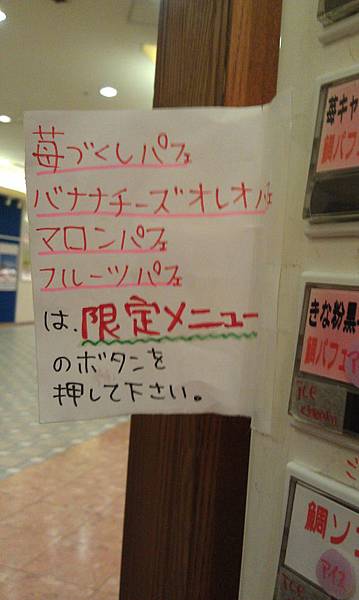 苺づくしパフェ
バナナチーズオレオパフェ
マロンパフェ
フルーツパフェ
は、限定メニュー
のボタンを
押して下さい。
苺キャ
鯛パフ
きな粉黒
鯛パフェ
ICE
鯛ソフ
アイス
ICE